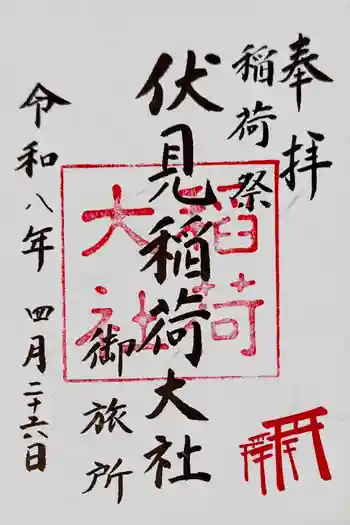 奉拝
稲荷祭
伏見稲荷大社
御旅所
令和八年 四月二十六日
稲荷
大社